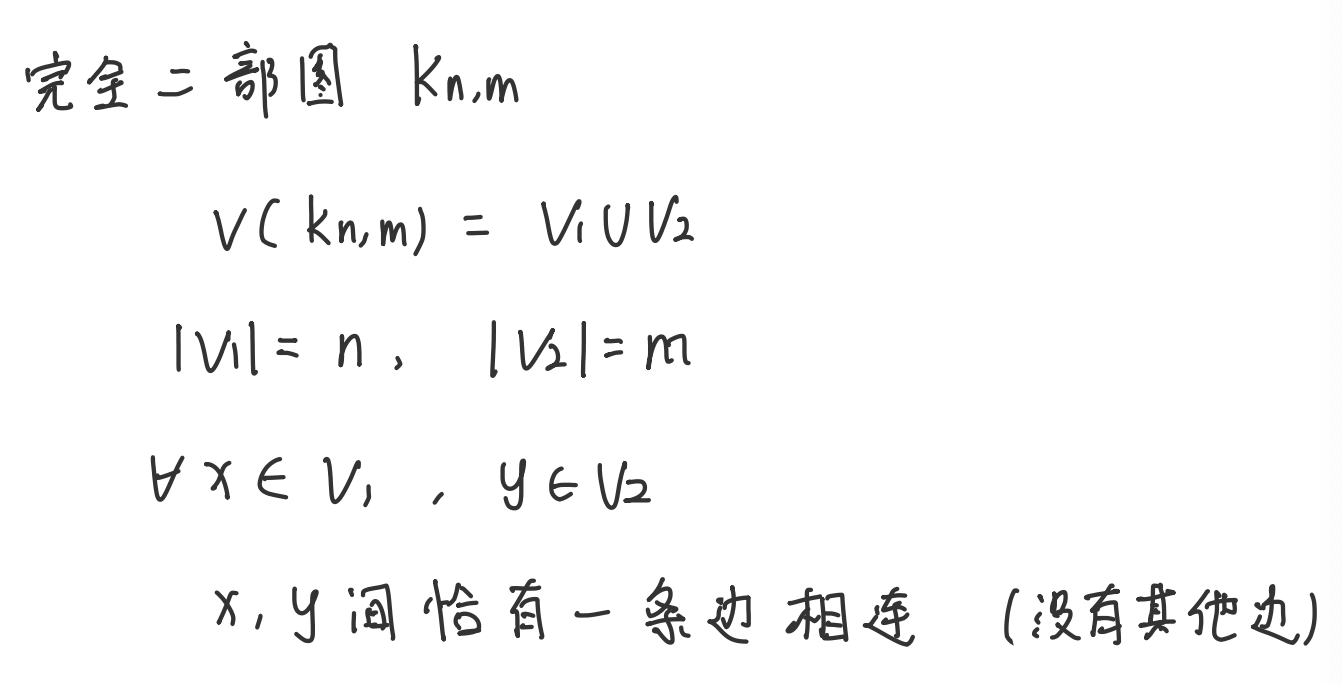 完全二部图 Kn,m
V(Kn,m) = V₁∪V₂
|V₁| = n, |V₂| = m
∀x∈V₁, y∈V₂
x, y间恰有一条边相连 (没有其他边)